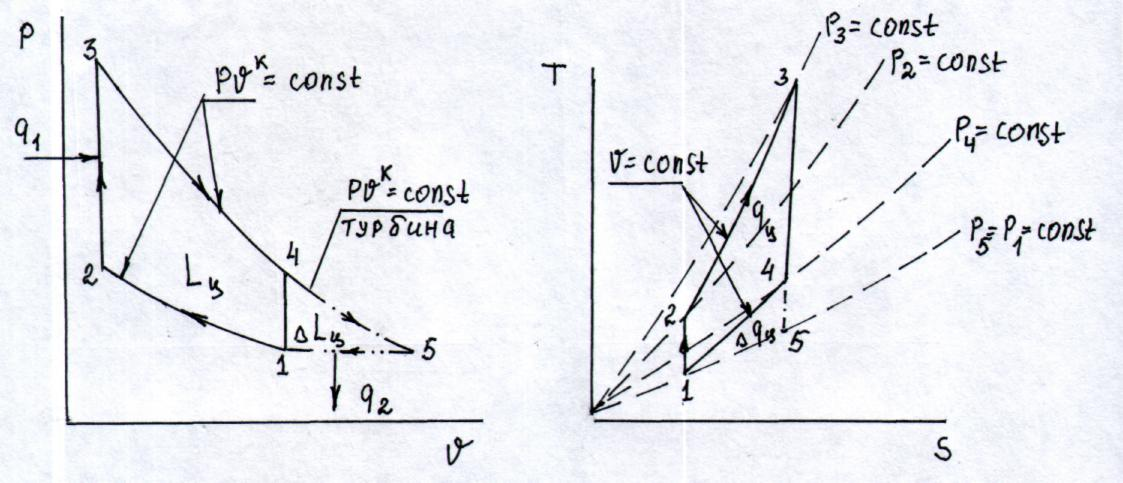 P
3
Pϑᴷ = const
q₁
Pϑᴷ = const
ТУРБИНА
2
Lц
4
ΔLц
1
5
q₂
ϑ
T
P₃ = const
3
P₂ = const
P₄ = const
ϑ = const
qц
P₅ = P₁ = const
4
2
Δqц
5
1
S